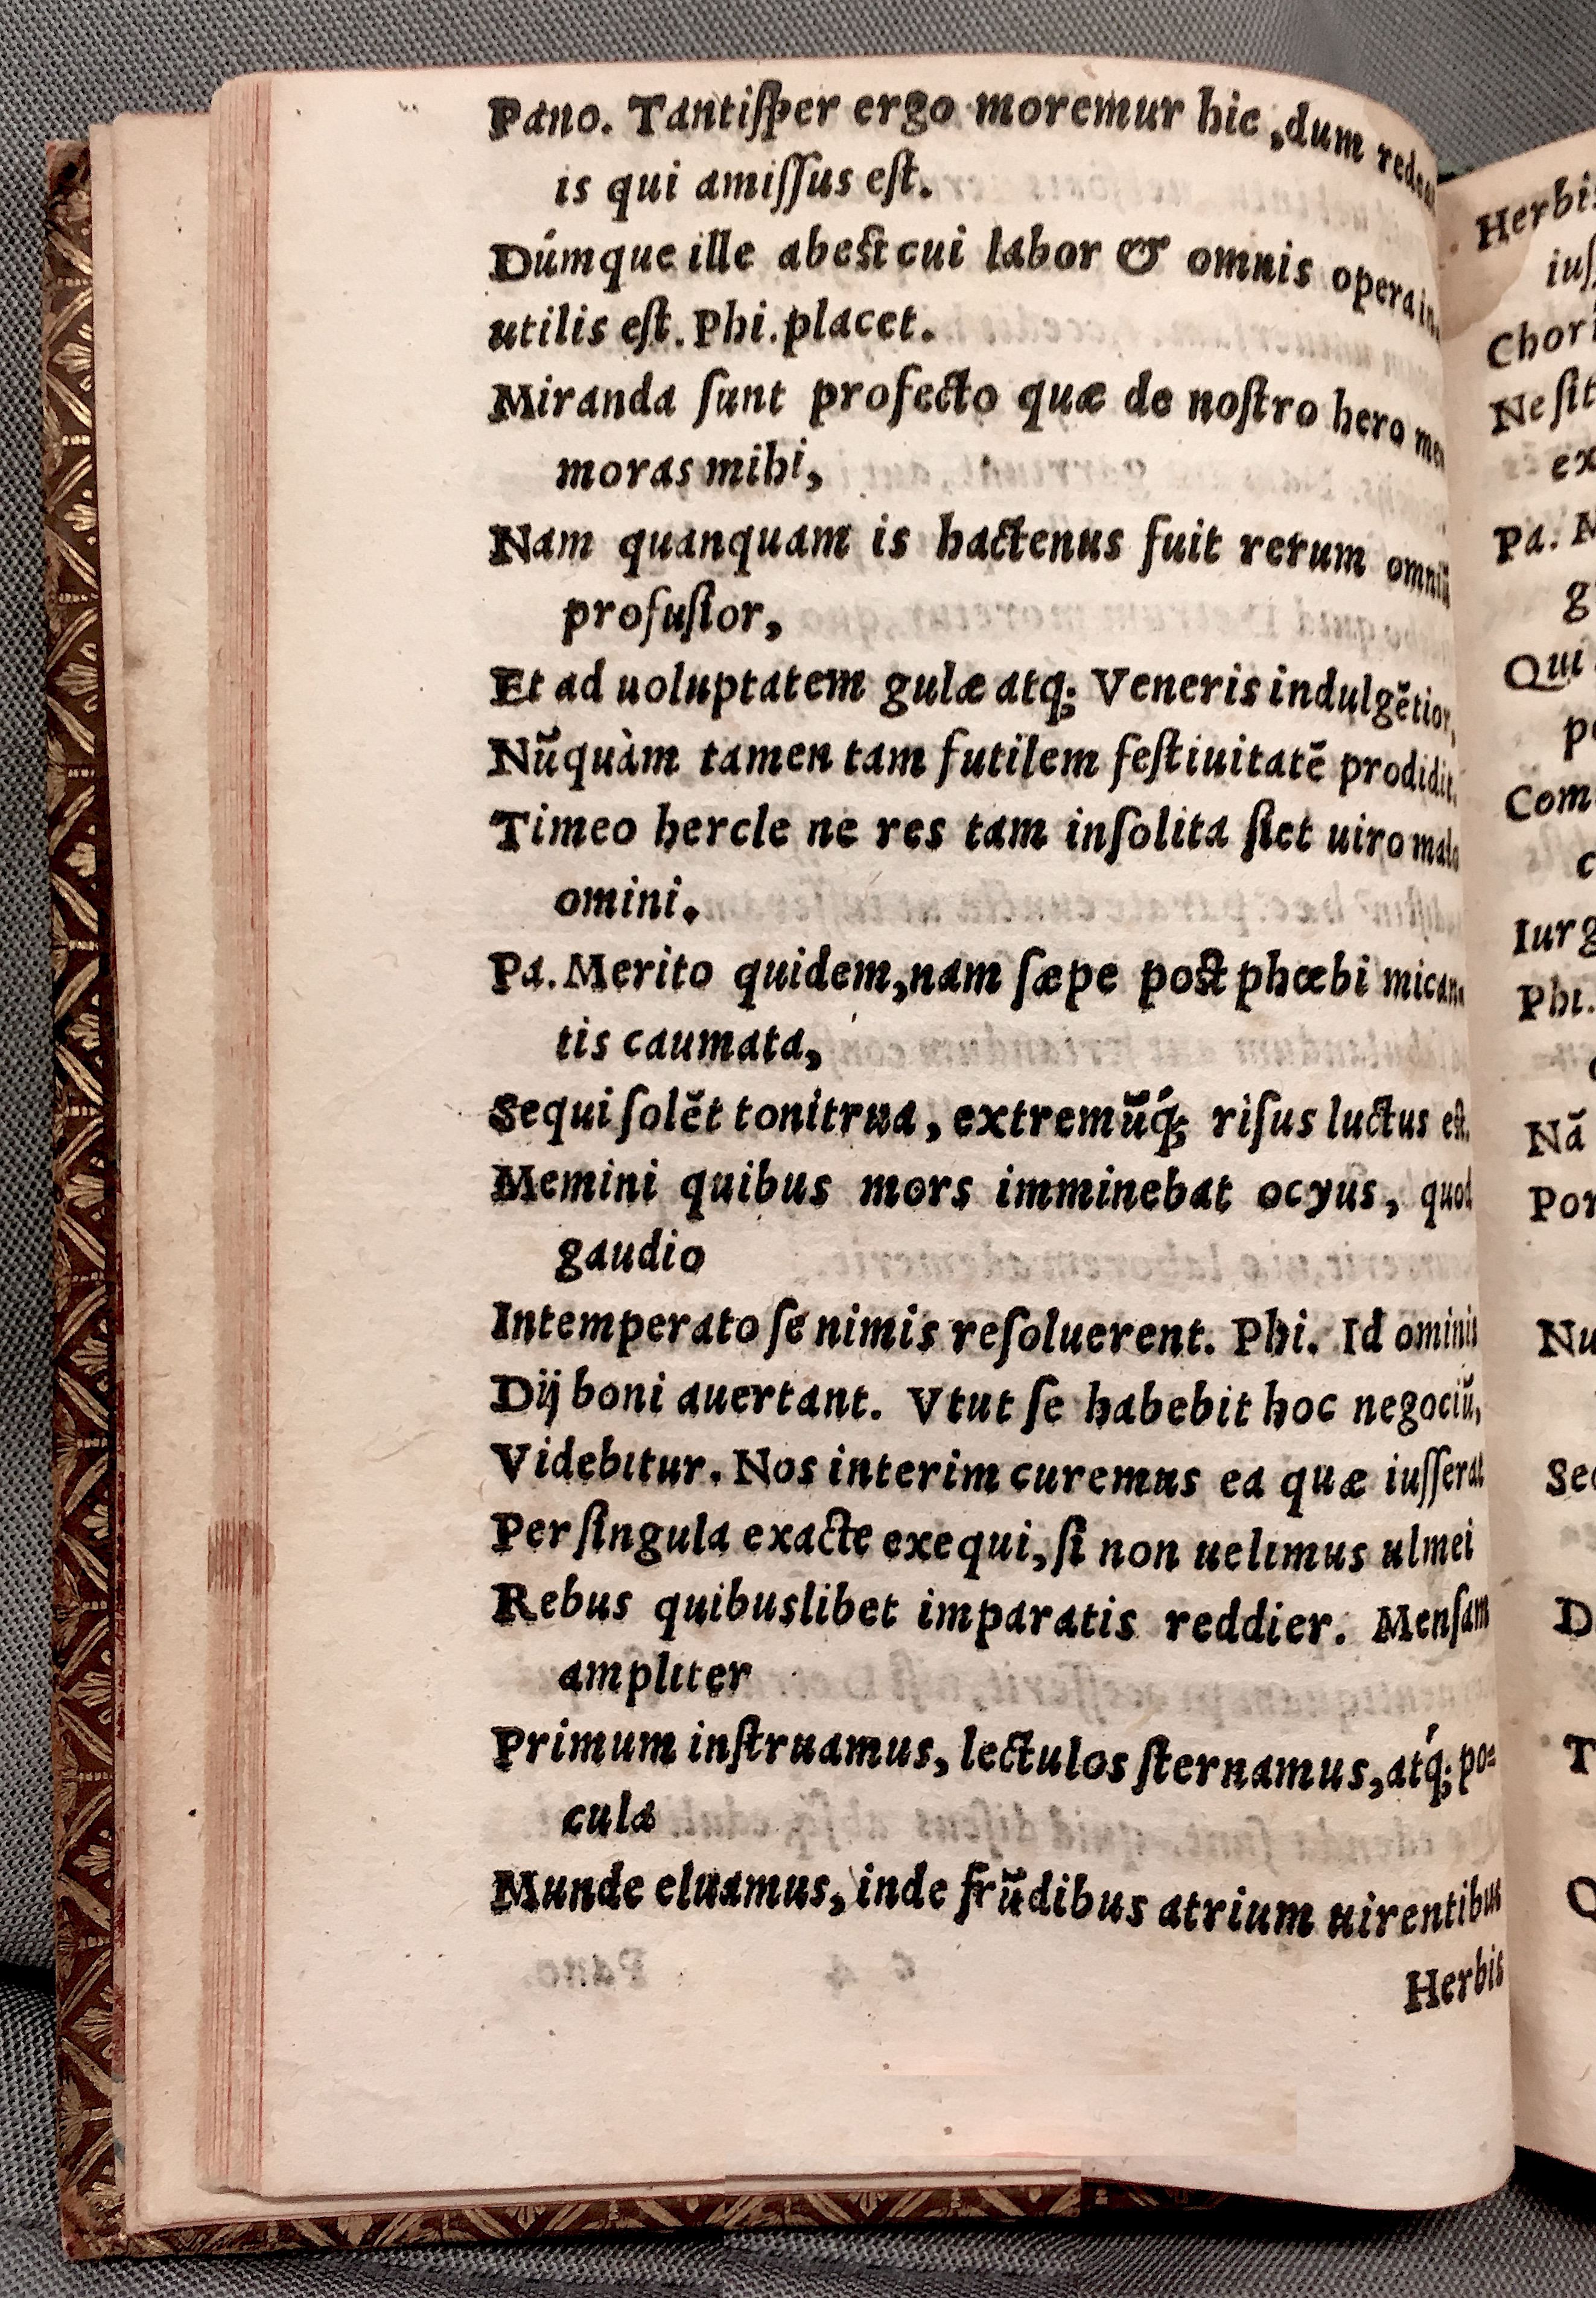 Pano. Tantiſper ergo moremur hic, dum redeat
is qui amiſſus eſt.
Dúmque ille abest cui labor & omnis opera in-
utilis eſt. Phi. placet.
Miranda ſunt profecto quæ de noſtro hero me-
moras mihi,
Nam quanquam is hactenus fuit rerum omniũ
profuſior,
Et ad uoluptatem gulæ atq; Veneris indulgẽtior,
Nũquàm tamen tam futilem feſtiuitatẽ prodidit.
Timeo hercle ne res tam inſolita ſiet uiro malo
omini.
Pa. Merito quidem, nam ſæpe post phœbi mican-
tis caumata,
Sequi ſolẽt tonitrua, extremũq́; riſus luctus eſt.
Memini quibus mors imminebat ocyus, quod
gaudio
Intemperato ſe nimis reſoluerent. Phi. Id ominis
Dij boni auertant. Vtut ſe habebit hoc negociũ,
Videbitur. Nos interim curemus ea quæ iuſſerat
Per ſingula exacte exequi, ſi non uelimus ulmei
Rebus quibuslibet imparatis reddier. Menſam
ampliter
Primum inſtruamus, lectulos ſternamus, atq́; po-
cula
Munde eluamus, inde frũdibus atrium uirentibus
Herbis
Herbis
iuſ
Chori
Ne ſit
ex
Pa.
g
Qui
Com
c
Iurg
Phi.
Nã
Por
Nu
Sec
D
T
Q